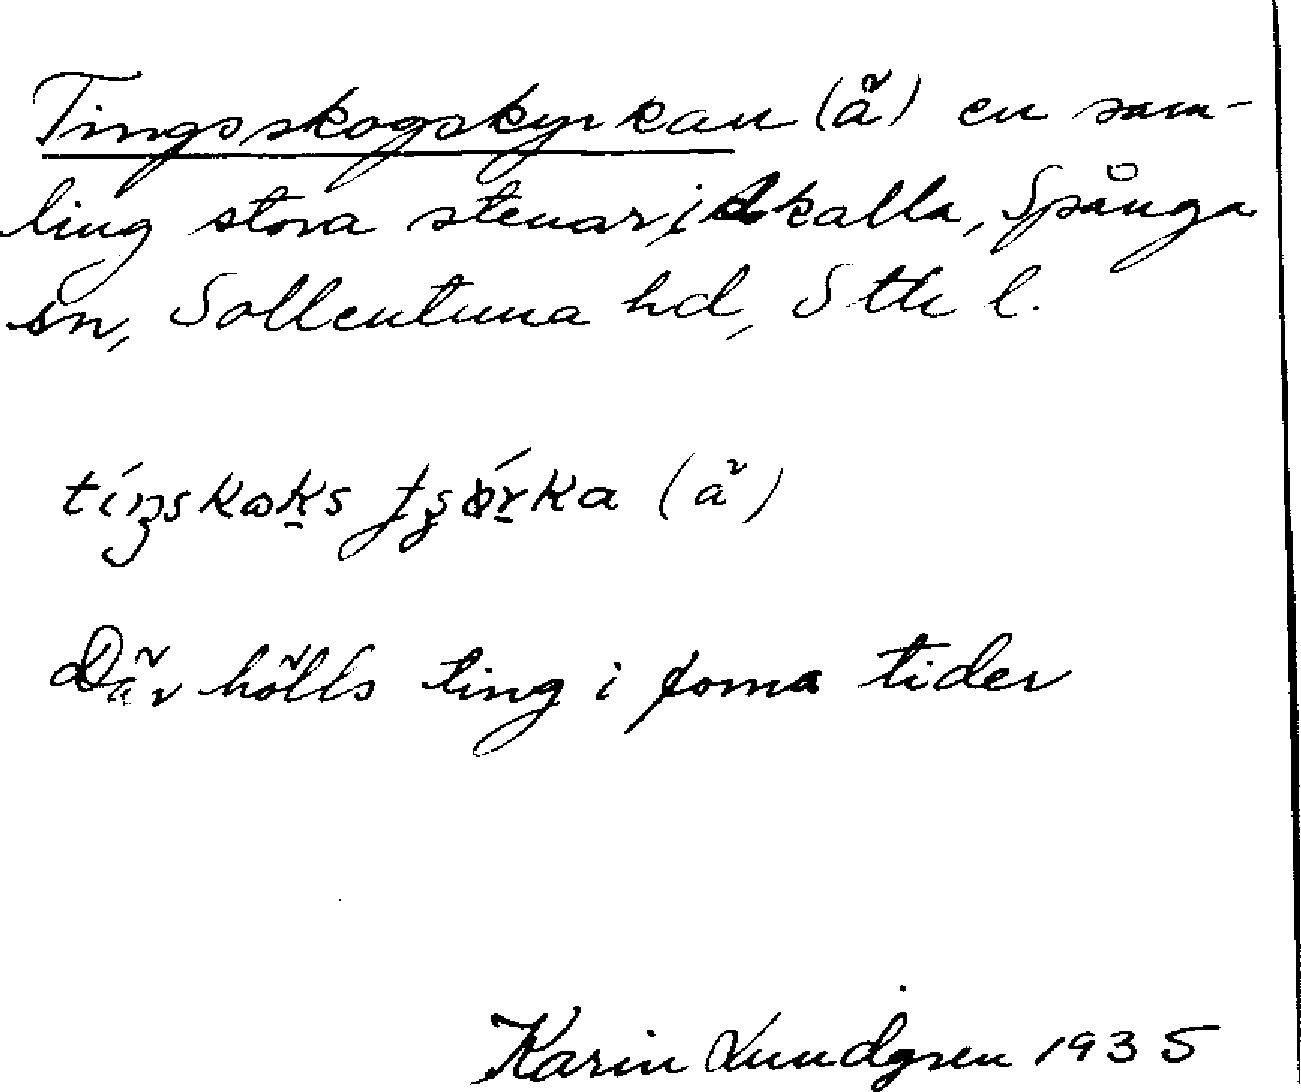 Tingsskogskyrkan (ä̆) en sam-
ling stora stenar i Akalla, Spånga
sn, Sollentuna hd, Sthl.
(ä̆)
Där hölls ting i forna tider
Karin Lundgren 1935